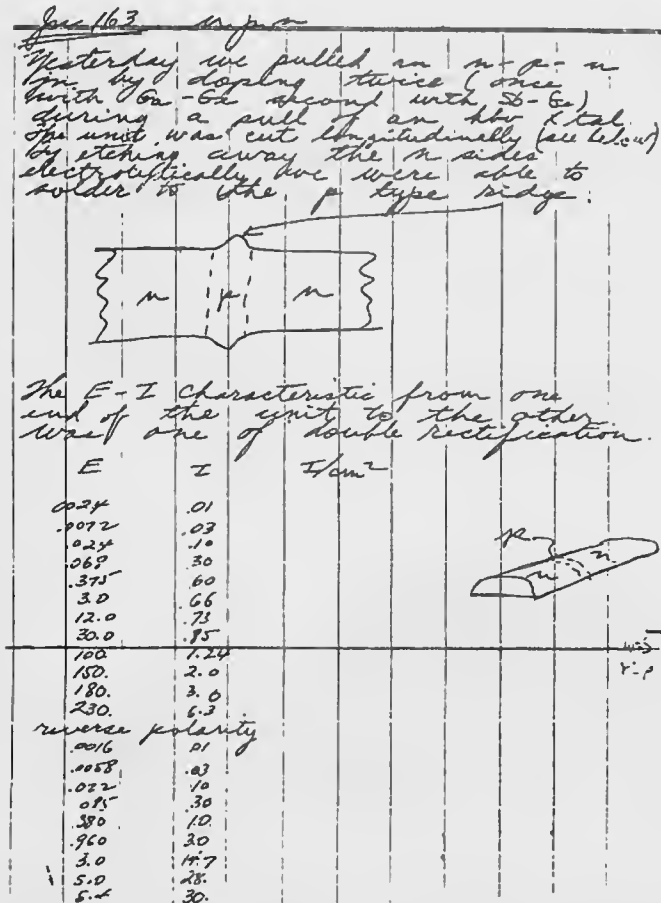 n-p-n
Yesterday we pulled an n-p-n
in by doping twice (once
with Ga-Ge second with Sb-Ge)
during a pull of an hbv Xtal.
The unit was cut longitudinally (see below)
by etching away the n sides
electrolytically we were able to
solder to the p type ridge.
n p n
The E-I characteristic from one
end of the unit to the other
was one of double rectification.
E I I/cm²
.0024 .01
.0072 .03
.024 .10
.068 .30
.375 .60
3.0 .66
12.0 .73
30.0 .85
100 1.24
150. 2.0
180. 3.0
230. 6.3
p
n n
reverse polarity
.0016 .01
.0058 .03
.022 .10
.085 .30
.380 1.0
.960 3.0
3.0 14.7
5.0 28.
5.4 30.